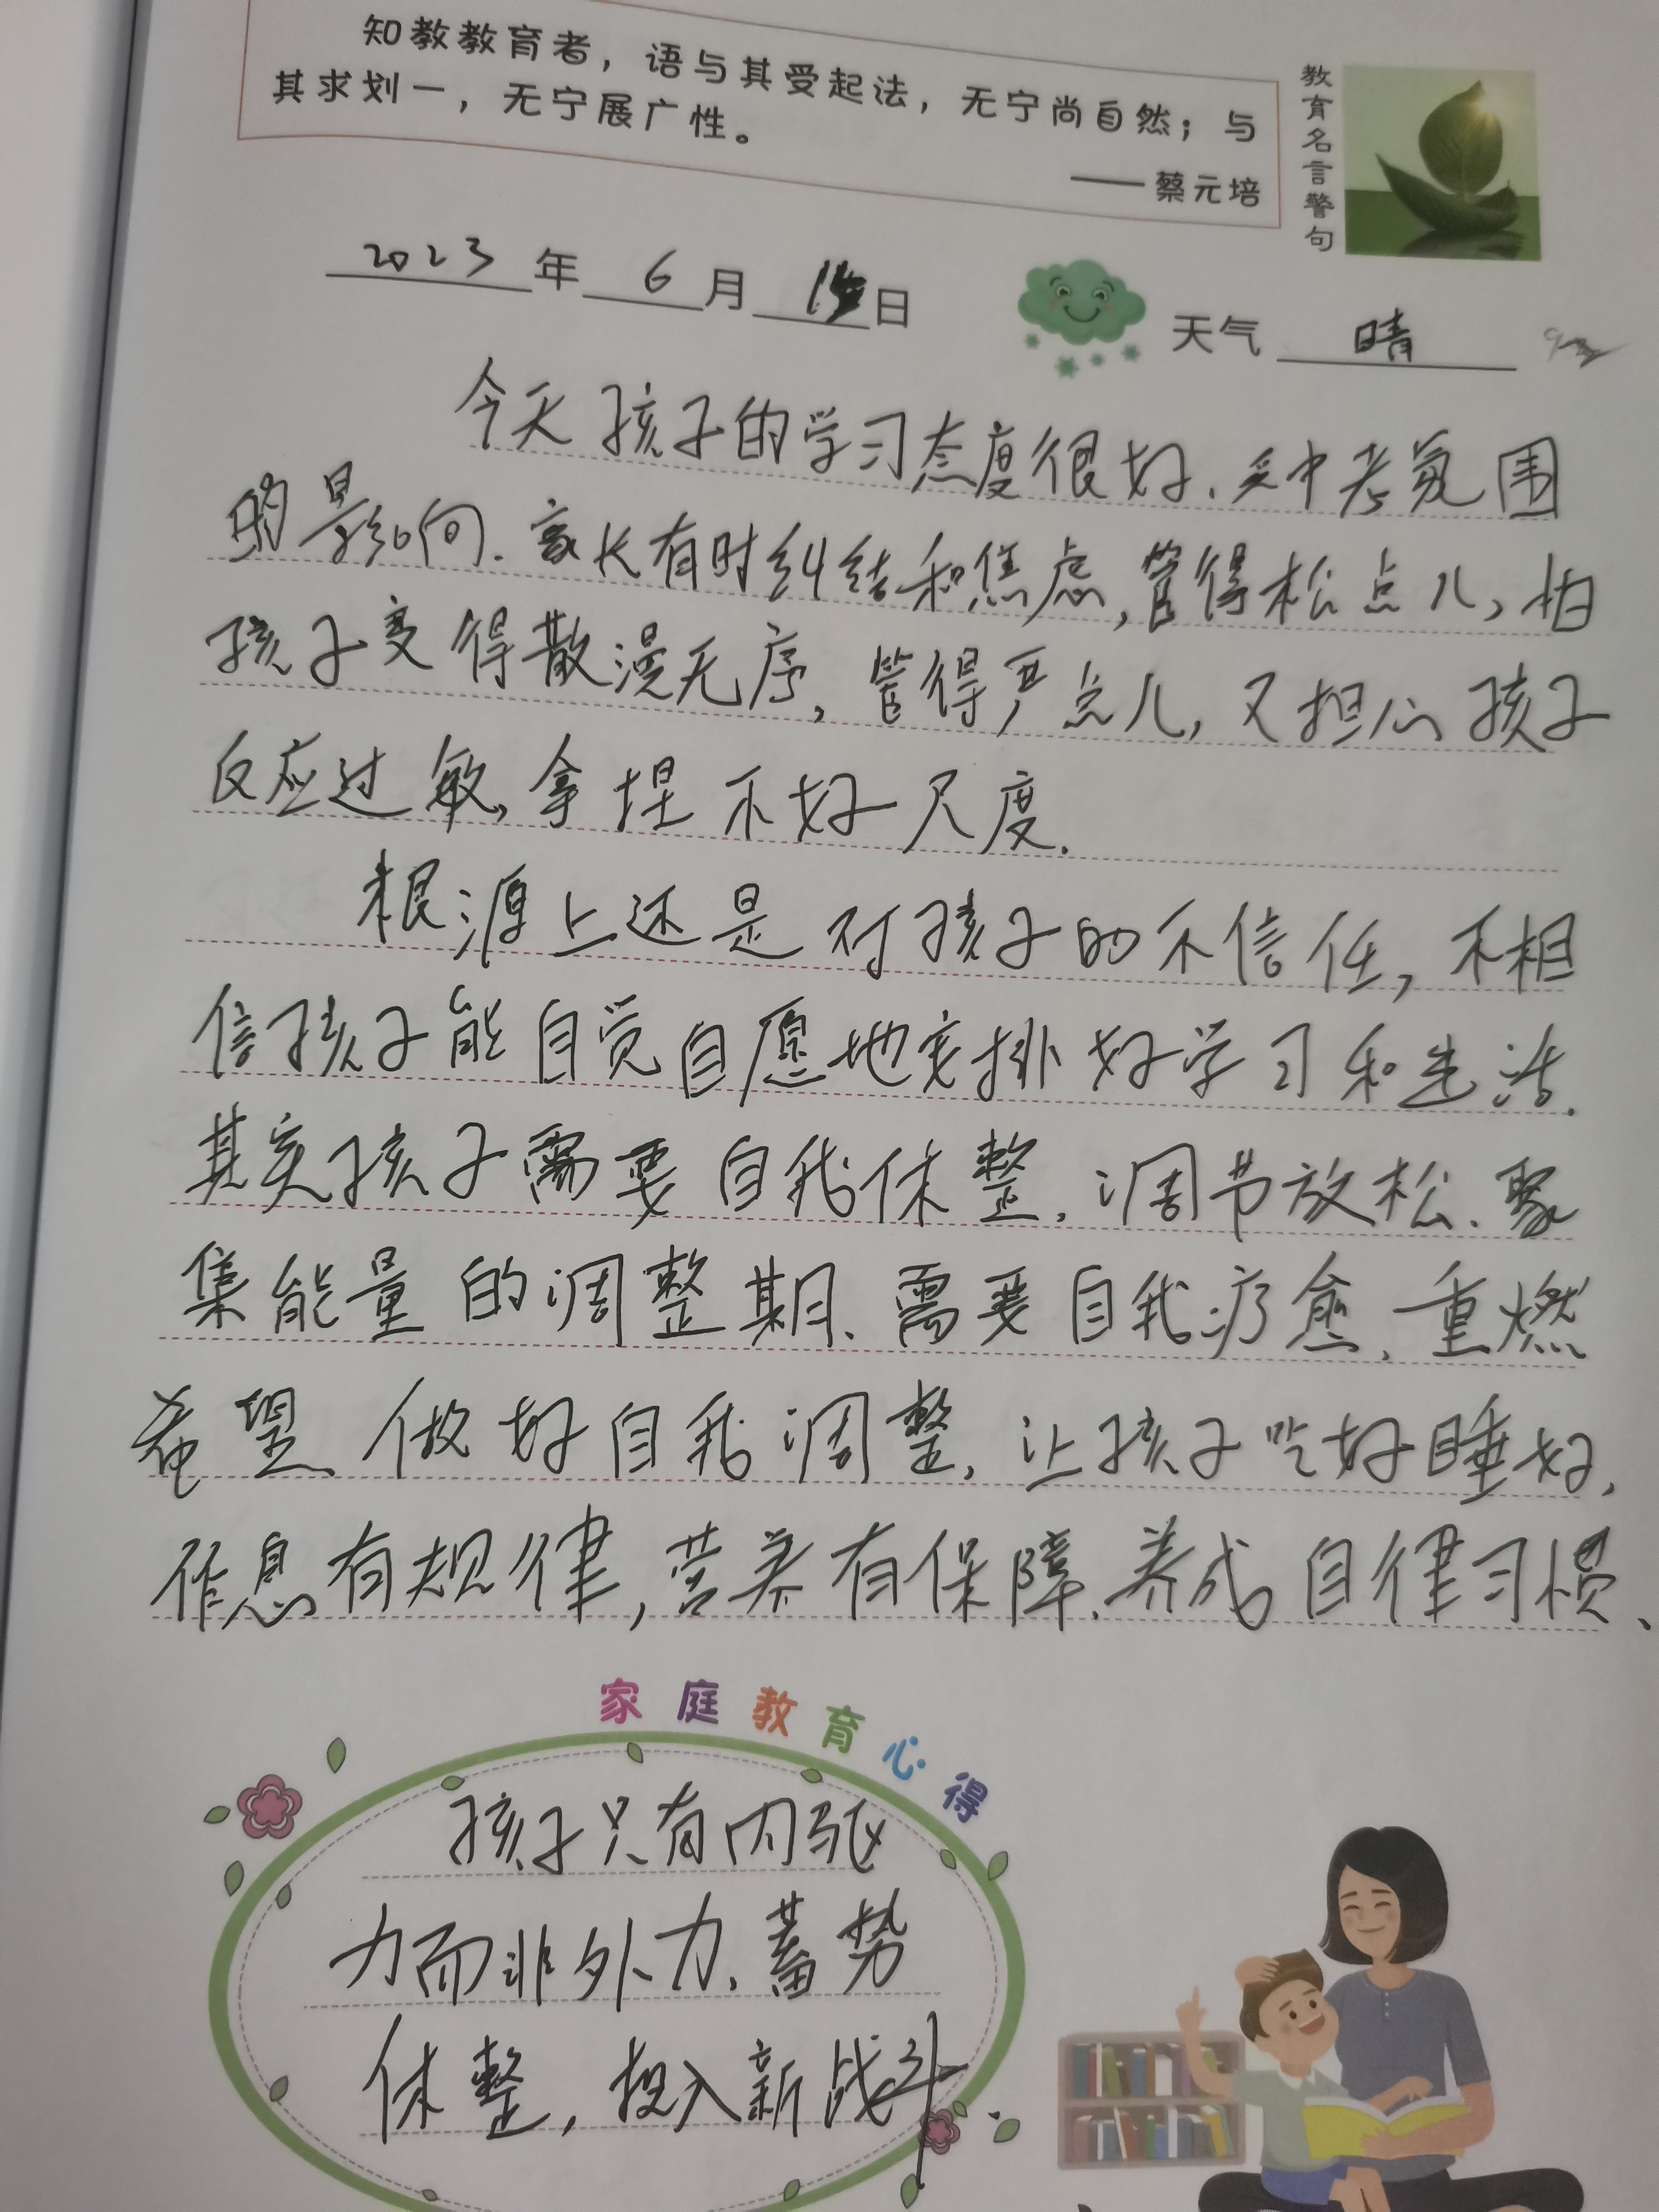 知教教育者，语与其受起法，无宁尚自然；与
其求划一，无宁展广性。
——蔡元培
教育名言警句
2023年6月 日
天气 晴
今天孩子的学习态度很好.受中考氛围
的影响.家长有时纠结和焦虑,管得松点儿,怕
孩子变得散漫无序,管得严点儿,又担心孩子
反应过敏,拿捏不好尺度.
根源上还是对孩子的不信任,不相
信孩子能自觉自愿地安排好学习和生活.
其实孩子需要自我休整.调节放松.聚
集能量的调整期、需要自我疗愈、重燃
希望 做好自我调整,让孩子吃好睡好,
作息有规律,营养有保障.养成自律习惯、
家庭教育心得
孩子只有内驱
力而非外力.蓄势
休整,投入新战斗.